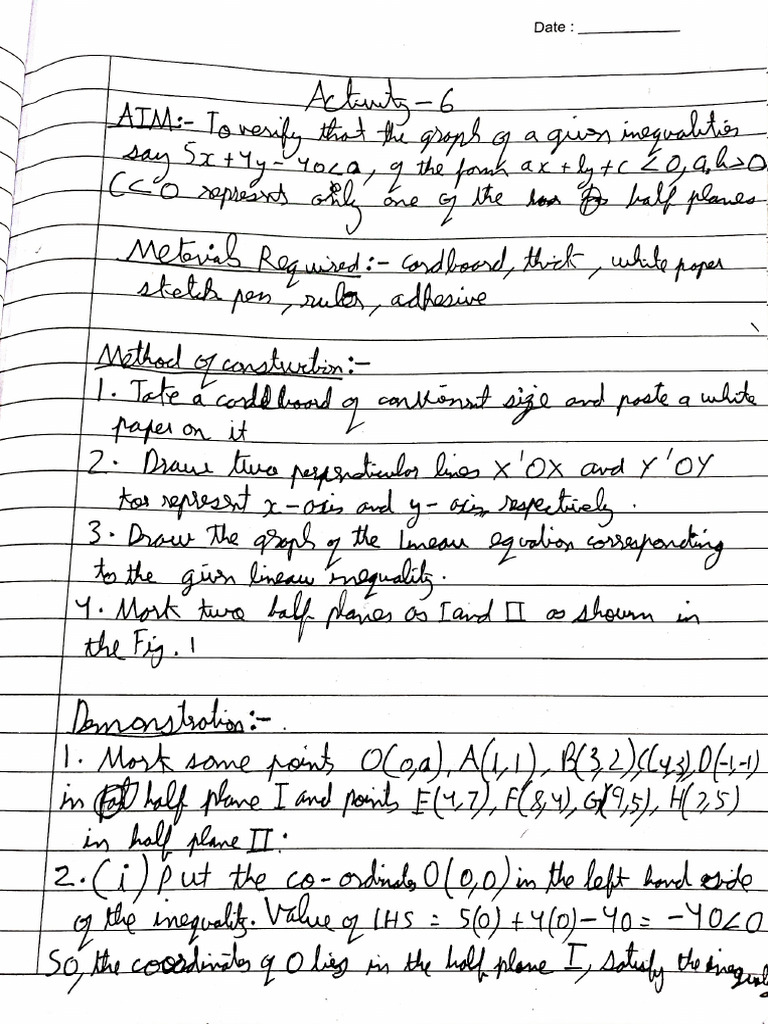 Date :
Activity - 6
AIM:- To verify that the graph of a given inequalities
say 5x+4y-40<0, of the form ax+by+c <0, a,b>0
C<0 represnts only one of the half planes
Meterials Required:- cardboard, thick, white paper
sketch pen, ruler, adhesive
Method of constuction:-
1. Take a cardboard of size and paste a white
paper on it
2. Draw two lines X'OX and Y'OY
represent x-axis and y-axis respectively.
3. Draw the graph of the linear equation corresponding
to the given linear inequality.
4. Mark two half planes as I and II as shown in
the Fig. 1
Demonstration:-
1. Mark some points O(0,0), A(1,1), B(3,2) C(4,3), D(-1,-1)
in half plane I and points E(4,7), F(8,4), G(9,5), H(7,5)
in half plane II.
2. (i) Put the co-ordinates O(0,0) in the left hand side
of the inequality. Value of LHS = 5(0)+4(0)-40 = -40<0
So, the coordinates of O lies in the half plane I, satisfy the